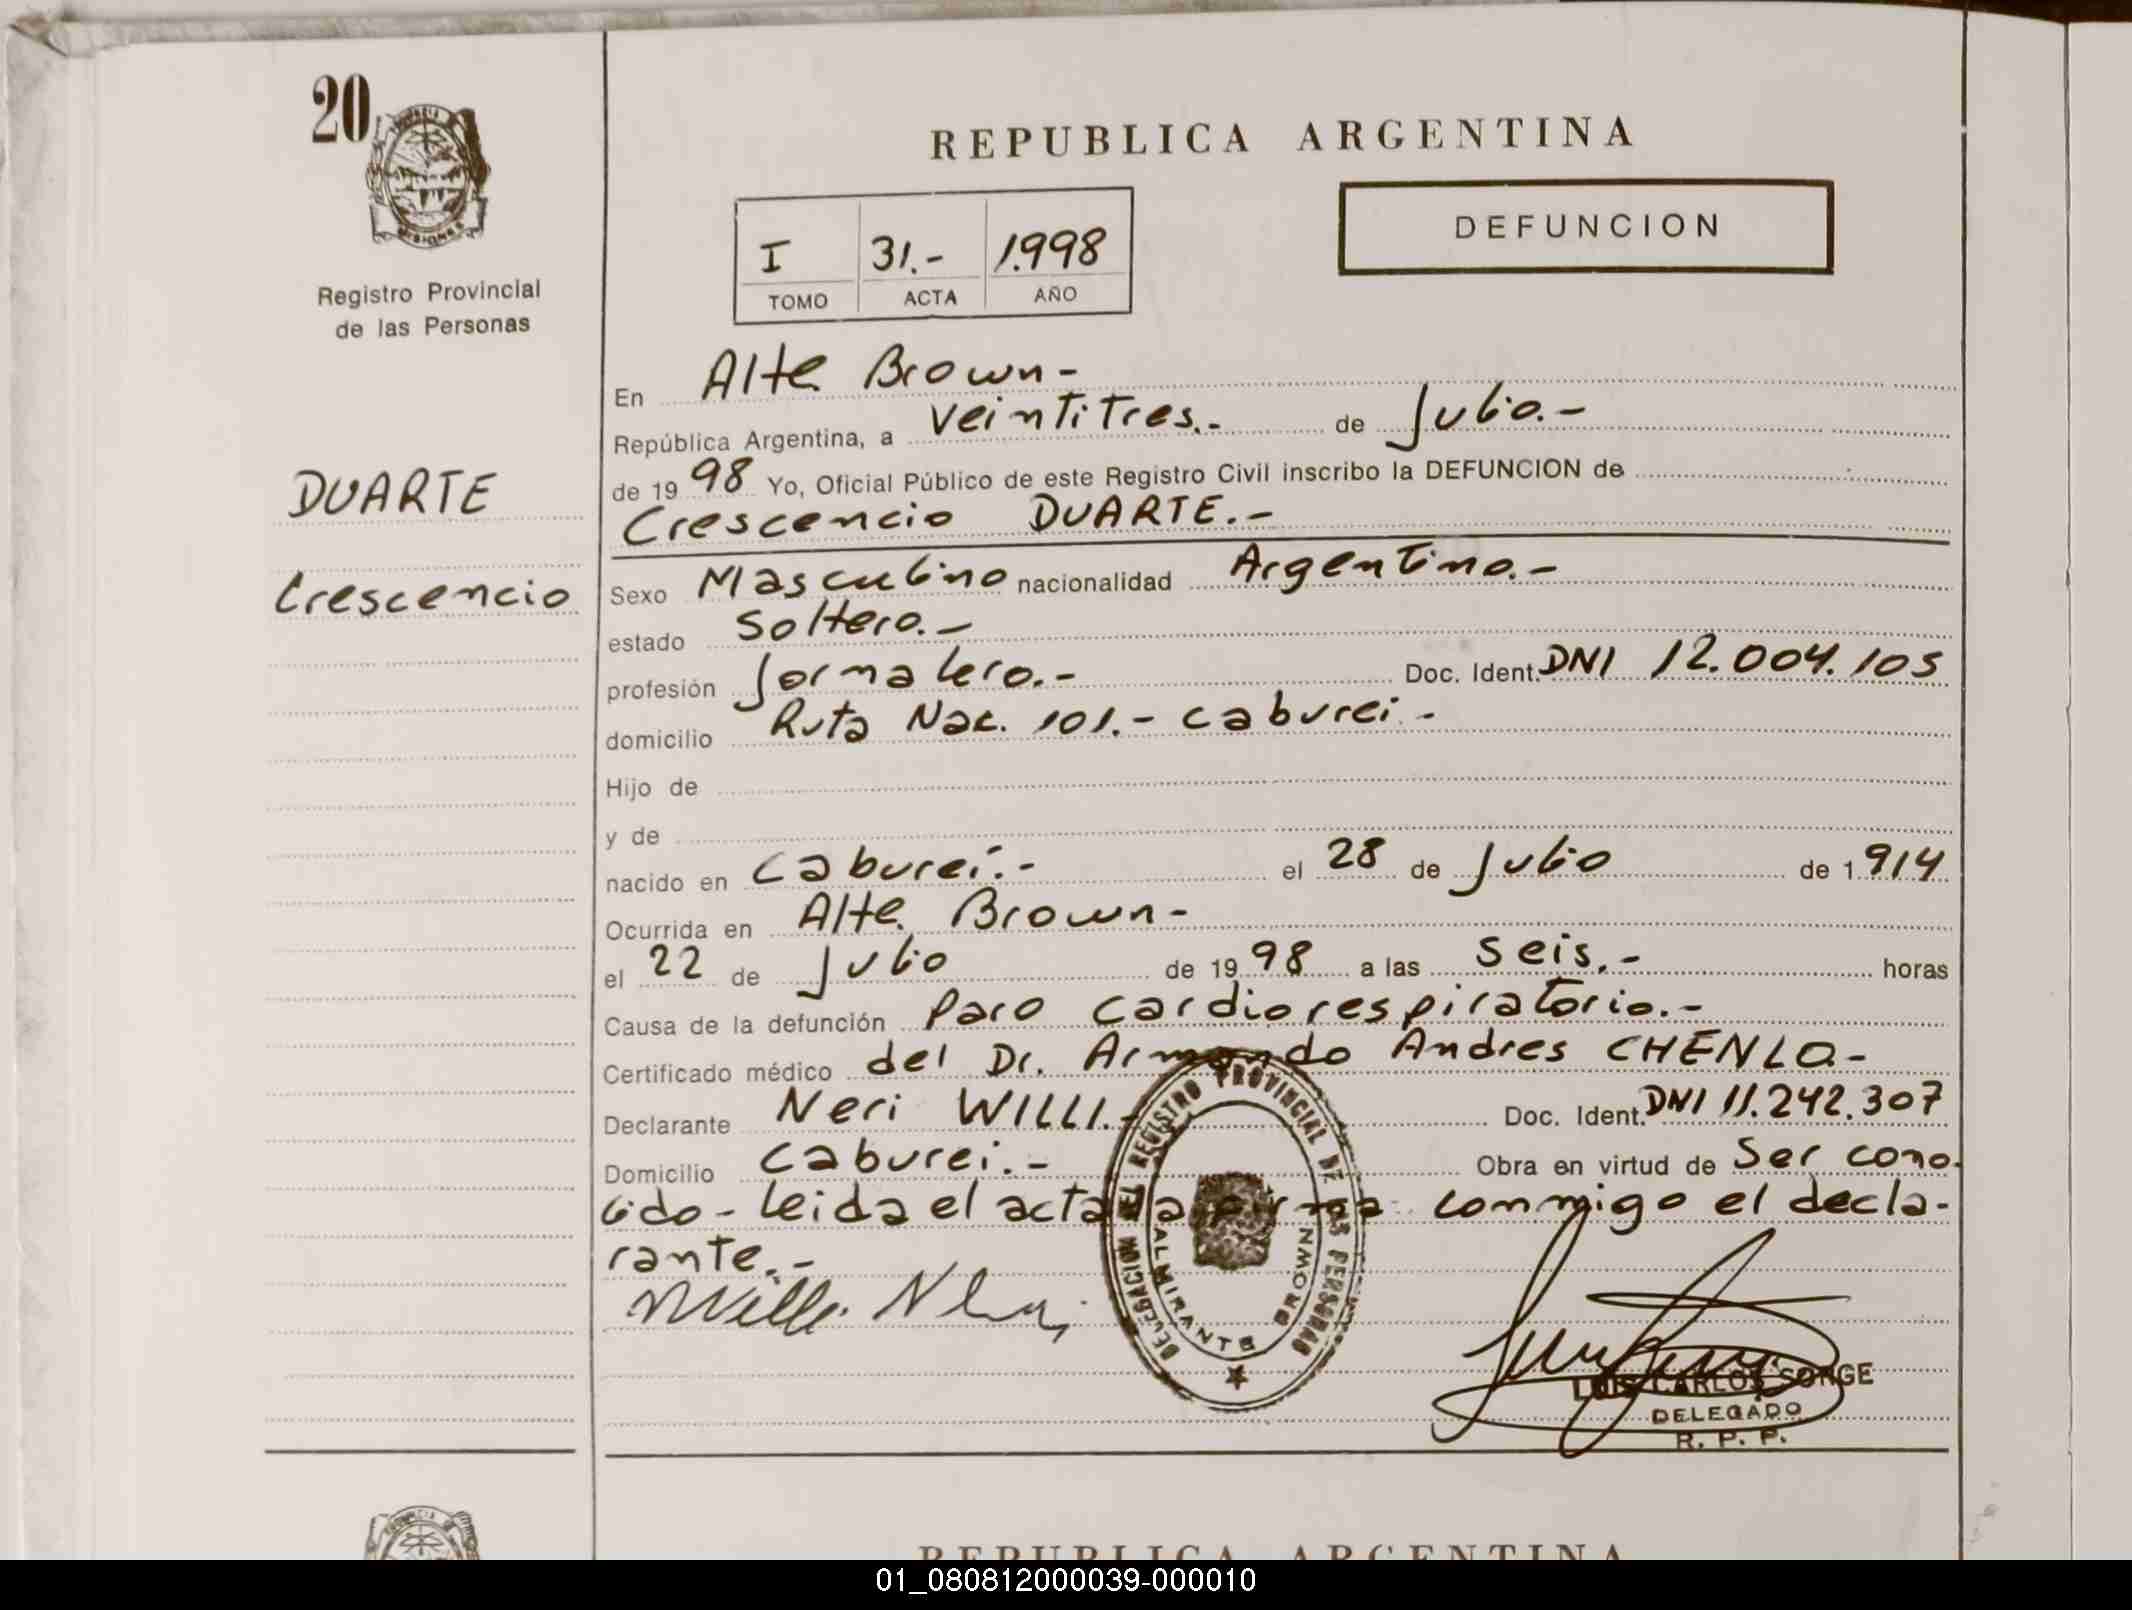 20
PROVINCIA DE
MISIONES
Registro Provincial
de las Personas
DUARTE
Crescencio
REPUBLICA ARGENTINA
I 31.- 1.998
TOMO ACTA AÑO
DEFUNCION
En Alte. Brown-
República Argentina, a veintitres.- de Julio.-
de 19 98 Yo, Oficial Público de este Registro Civil inscribo la DEFUNCION de
Crescencio DUARTE.-
Sexo Masculino nacionalidad Argentino.-
estado Soltero.-
profesión Jornalero.- Doc. Ident. DNI 12.004.105
domicilio Ruta Nac. 101.- Caburei.-
Hijo de
y de
nacido en Caburei.- el 28 de Julio de 1 914
Ocurrida en Alte. Brown-
el 22 de Julio de 19 98 a las seis.- horas
Causa de la defunción Paro cardiorespiratorio.-
Certificado médico del Dr. Armando Andres CHENLO.-
Declarante Neri WILLI.- Doc. Ident. DNI 11.242.307
Domicilio Caburei.- Obra en virtud de Ser cono-
cido- leida el acta la firma conmigo el decla-
rante.-
DELEGACION DEL REGISTRO PROVINCIAL DE LAS PERSONAS
ALMIRANTE BROWN
LUIS CARLOS SORGE
DELEGADO
R. P. P.
REPUBLICA ARGENTINA
01_080812000039-000010